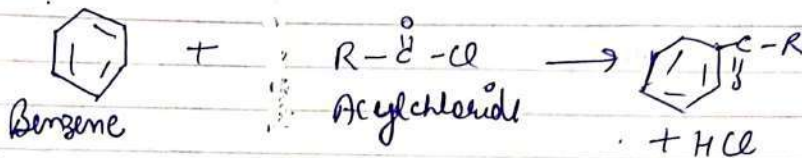 O
+ R-C-Cl → C-R
Benzene Acylchloride O
+ HCl